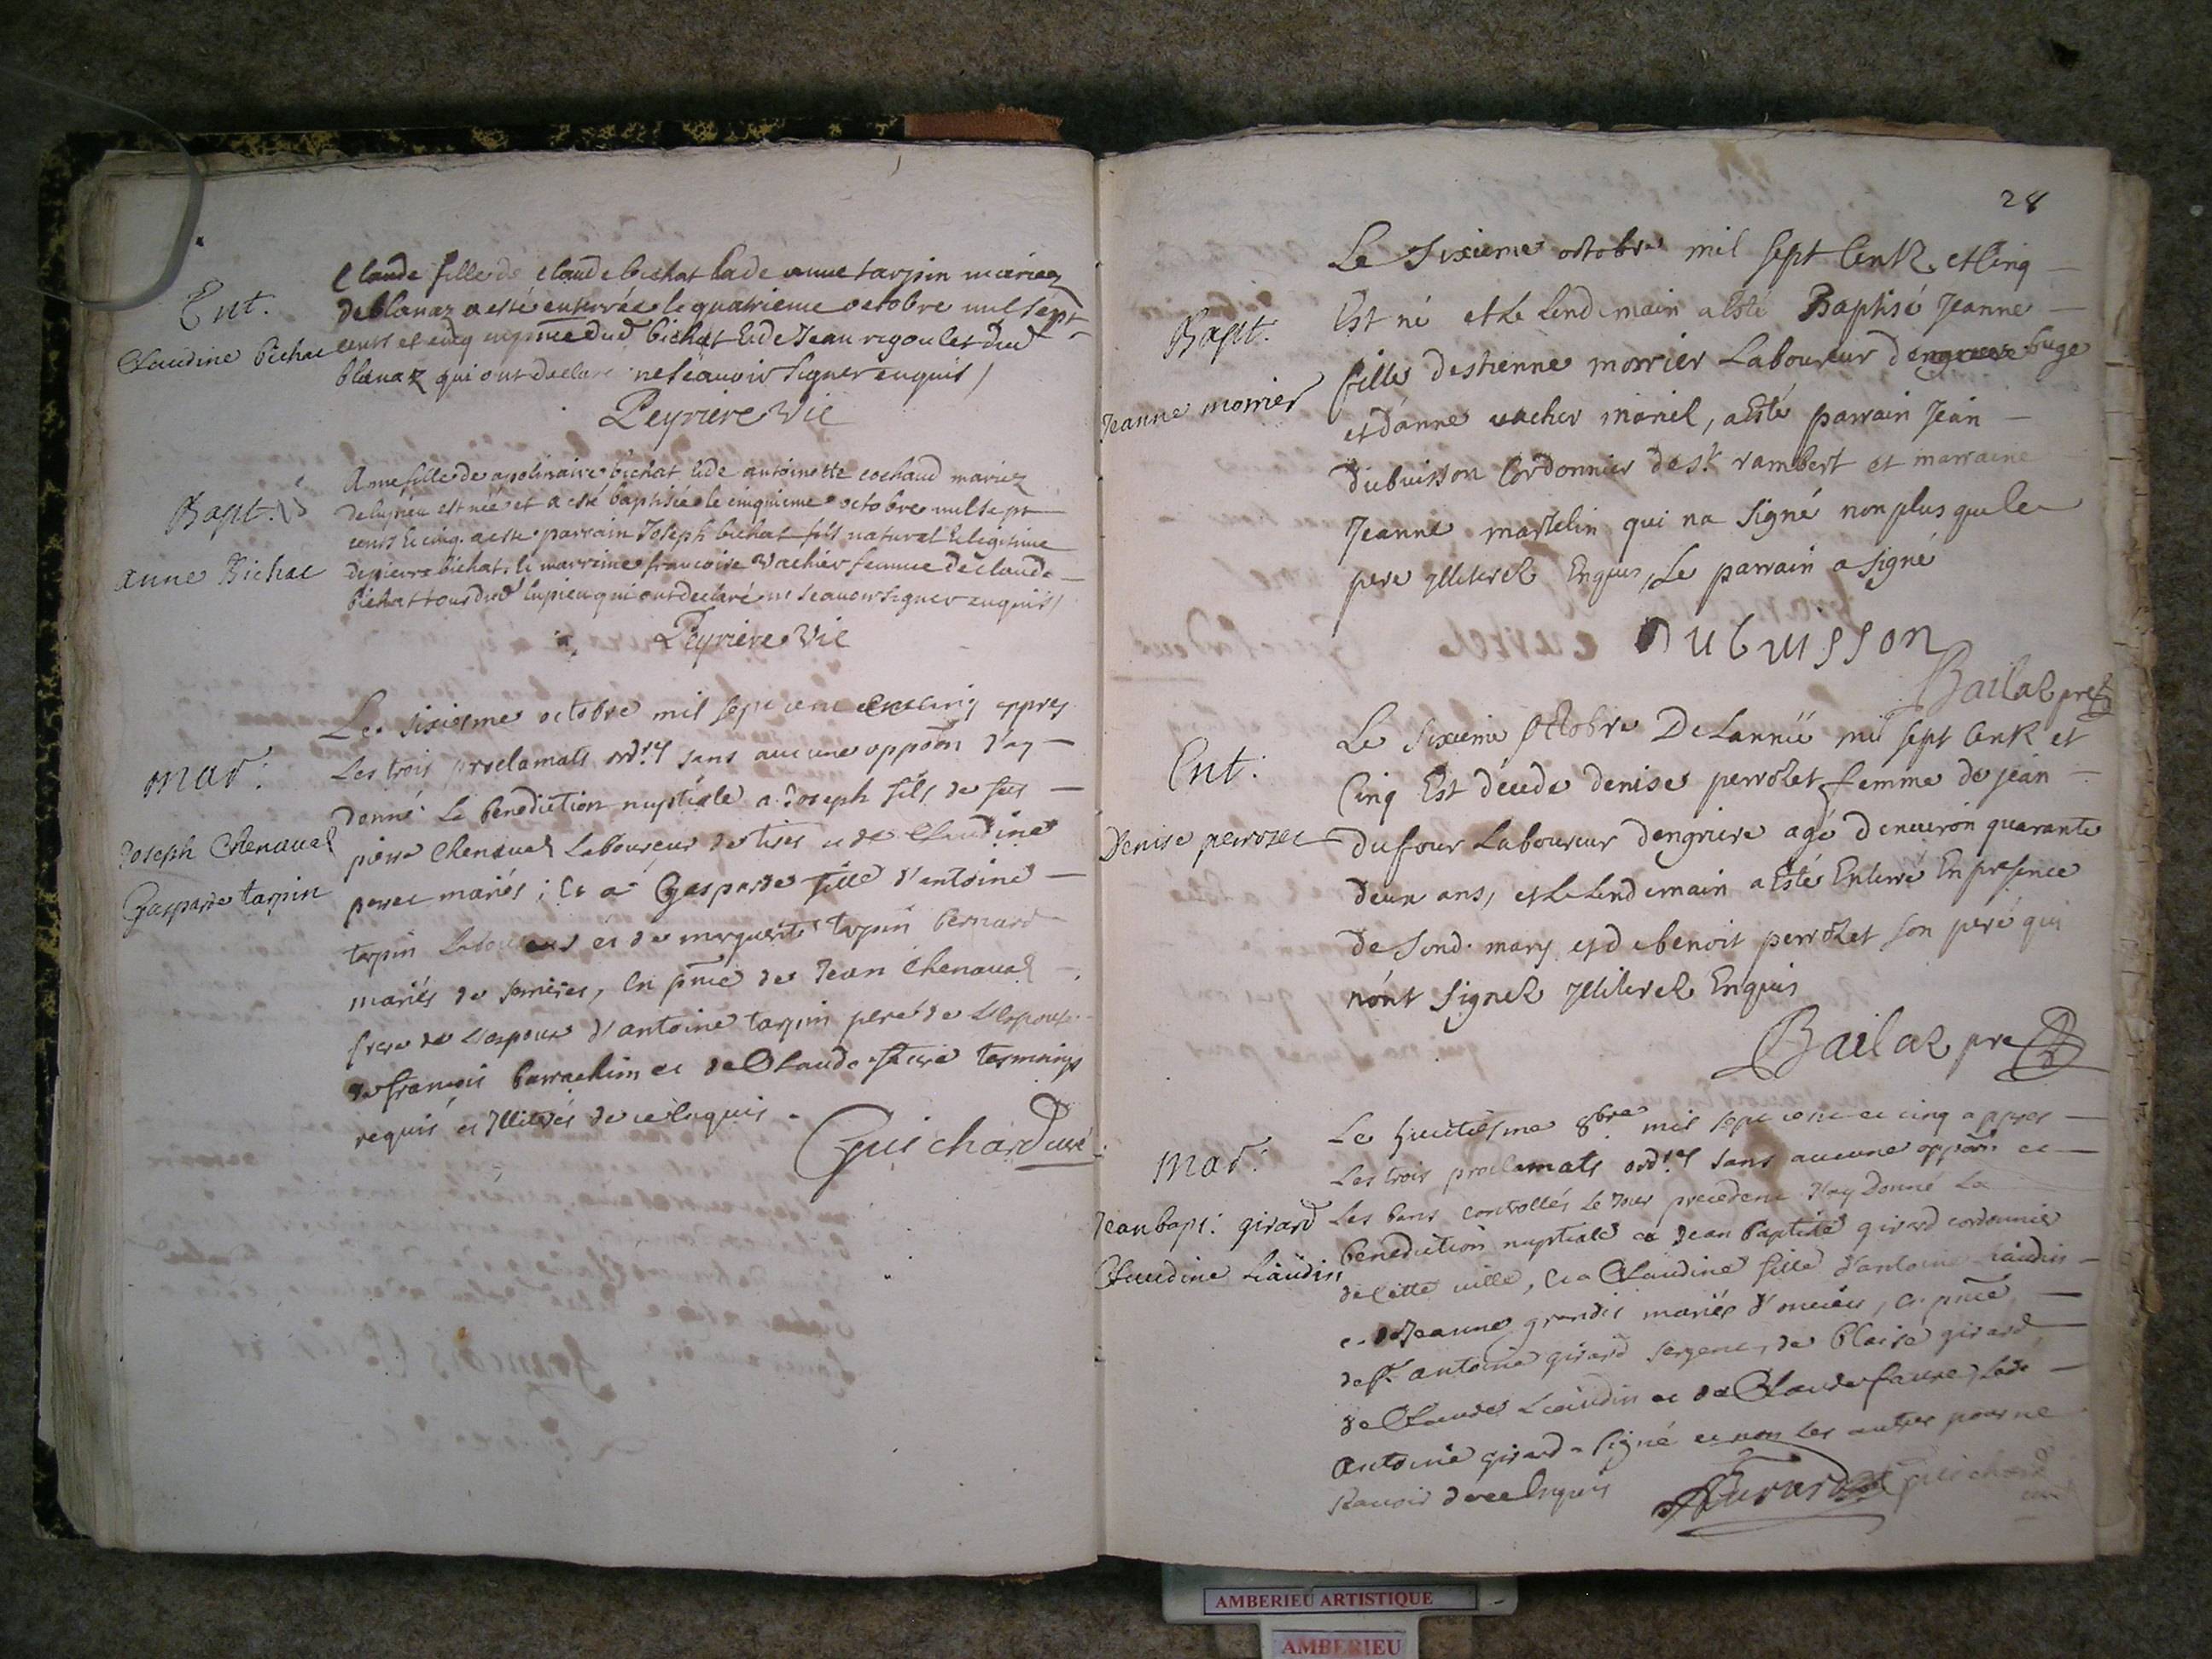 Ent.
Claudine Bichat
Claude fille de Claude bichat & de anne tarpin mariez
de blanaz a esté enterrée le quatrieme octobre mil sept
cents et cinq en pnce dud bichat & de Jean rigoulet dud
blanaz qui ont declaré ne scauoir signer enquis /
Peyriere Vic
Bapt.
anne Bichat
Anne fille de apolinaire bichat & de antoinette cochaud mariez
de lupieu est née et a esté baptisée le cinquieme octobre mil sept
cents & cinq. a este parrain Joseph bichat fils naturel & legitime
de pierre bichat, & marreine francoise Vachier femme de claude
bichat tous dud lupieu qui ont declaré ne scauoir signer enquis /
Peyriere Vic
Mar:
Joseph Chenaual
Gasparde tarpin
Le sixiesme octobre mil sept cent et cinq appres
Les trois proclamats ordres sans aucune oppoon J'ay
donné la benediction nuptiale a Joseph fils de feu
pierre Chenaual Laboureur de et de Claudine
mariés; Et a Gasparde fille d'antoine
tarpin Laboureur et de marguerite tarpin bernard
mariés de, En pnce de Jean Chenaual
frere de L'espoux d'antoine tarpin pere de L'espouse
de françois barrachim et de Claude tesmoings
requis et Illiterés de ce Enquis.
Guichard curé
28
Bapt.
Jeanne morrier
Le Sixieme octobre mil sept Cents et Cinq
Est né et Le Lendemain a Esté Baptisé Jeanne
fille destienne morrier Laboureur buge
et d'anne vacher mariel, a Esté parrain Jean
dubuisson Cordonnier de st rambert et marraine
Jeanne martelin qui na signé non plus que le
pere Illiterez Enquis, Le parrain a signé
Dubuisson
Bailaz pre
Ent.
Denise perrozet
Le Sixieme octobre De Lannée mil sept Cents et
Cinq Est décedé denise perrozet femme de jean
dufour Laboureur dengriere agé d'enuiron quarante
deux ans, et Le Lendemain a Esté Enterré En presence
de sond. mary et de benoit perrozet son pere qui
nont signez Illiterez Enquis
Bailaz pre
Mar:
Jean bapt: girard
Claudine Liaudin
Le huitiesme 8bre mil sept cent et cinq appres
Les trois proclamats ordres sans aucune oppoon et
Les bans controllés Le Jour precedent J'ay donné La
benediction nuptiale a Jean baptiste girard cordonnier
de cette ville, Et a Claudine fille d'antoine Liaudin
et de Jeanne grandis mariés, En pnce
de Sr. antoine girard sergent, de blaise girard
de Claude Liaudin et de Claude faure, Led
antoine girard a signé et non Les autres pour ne
scauoir de ce Enquis
AGirard
Guichard
curé
AMBERIEU ARTISTIQUE
AMBERIEU